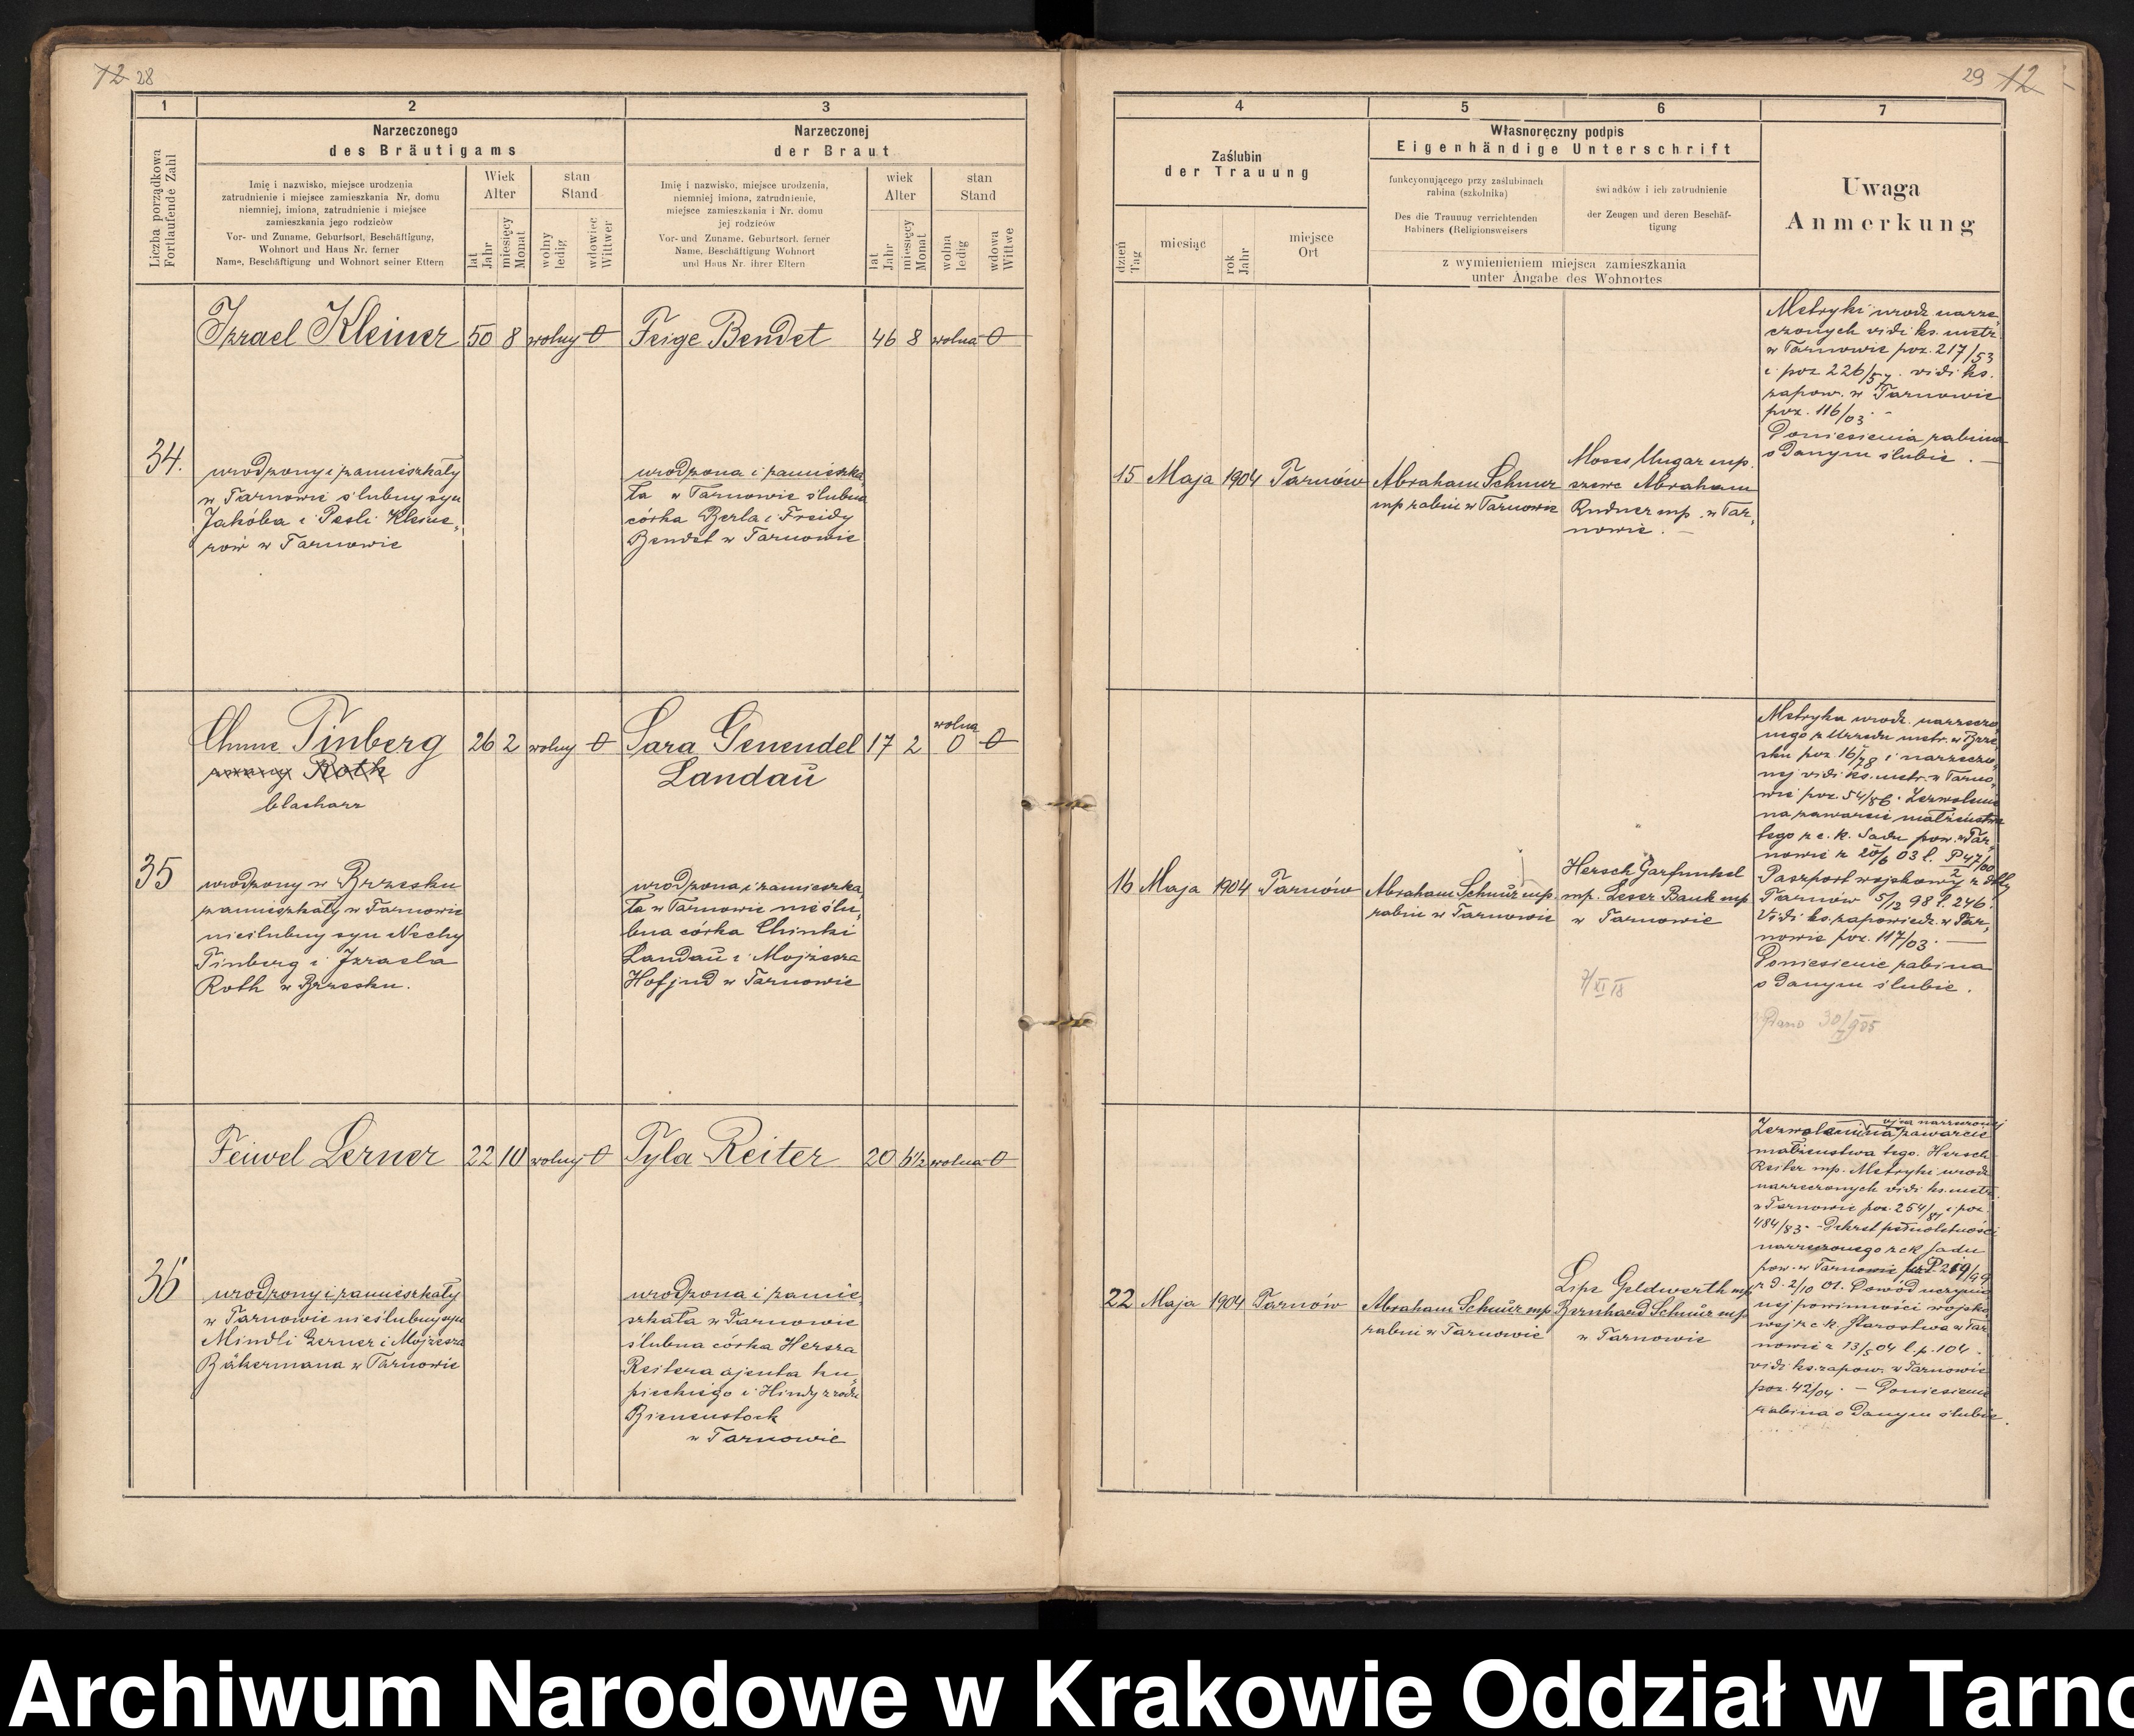 12 28
29 12
1
2
3
Liczba porządkowa
Fortlaufende Zahl
Narzeczonego
des Bräutigams
Narzeczonej
der Braut
Imię i nazwisko, miejsce urodzenia
zatrudnienie i miejsce zamieszkania Nr. domu
niemniej, imiona, zatrudnienie i miejsce
zamieszkania jego rodziców
Vor- und Zuname, Geburtsort, Beschäftigung,
Wohnort und Haus Nr. ferner
Name, Beschäftigung und Wohnort seiner Eltern
Wiek
Alter
stan
Stand
lat
Jahr
miesięcy
Monat
wolny
ledig
wdowiec
Wittwer
Imię i nazwisko, miejsce urodzenia,
niemniej imiona, zatrudnienie,
miejsce zamieszkania i Nr. domu
jej rodziców
Vor- und Zuname, Geburtsort, ferner
Name, Beschäftigung Wohnort
und Haus Nr. ihrer Eltern
wiek
Alter
stan
Stand
lat
Jahr
miesięcy
Monat
wolna
ledig
wdowa
Wittwe
4
5
6
7
Zaślubin
der Trauung
dzień
Tag
miesiąc
rok
Jahr
miejsce
Ort
Własnoręczny podpis
Eigenhändige Unterschrift
funkcyonującego przy zaślubinach
rabina (szkolnika)
Des die Trauung verrichtenden
Rabiners (Religionsweisers
świadków i ich zatrudnienie
der Zeugen und deren Beschäf-
tigung
z wymienieniem miejsca zamieszkania
unter Angabe des Wohnortes
Uwaga
Anmerkung
34.
Izrael Kleiner 50 8 wolny 0
urodzony i zamieszkały
w Tarnowie ślubny syn
Jakóba i Pesli Kleine„
rów w Tarnowie
Feige Bendet 46 8 wolna 0
urodzona i zamieszka„
ła w Tarnowie ślubna
córka Berla i Freidy
Bendet w Tarnowie
15 Maja 1904 Tarnów
Abraham Schnur
mp rabin w Tarnowie
Moses Ungar mp.
szewc Abraham
Rudner mp. w Tar„
nowie. —
Metryki urodz. narze„
czonych vidi ks. metr.
w Tarnowie poz. 217/53
i poz 226/57. vidi ks.
zapow. w Tarnowie
poz. 116/03. -
Doniesienia rabina
o danym ślubie. —
35
Chune Tinberg 26 2 wolny 0
Roth
blacharz
urodzony w Brzesku
zamieszkały w Tarnowie
nieślubny syn Nechy
Tinberg i Izraela
Roth w Brzesku.
Sara Genendel 17 2 wolna 0 0
Landau
urodzona i zamieszka„
ła w Tarnowie nieślu„
bna córka Chinki
Landau i Mojżesza
Hofjud w Tarnowie
16 Maja 1904 Tarnów
Abraham Schnur mp.
rabin w Tarnowie
Hersch Garfunkel
mp. Leser Bank mp
w Tarnowie
7/XI 18
Metryka urodz. narzeczo„
nego z Urzędu metr. w Brze„
sku poz 16/78 i narzeczo„
nej vidi ks. metr. w Tarno„
wie poz. 54/86. Zezwolenie
na zawarcie małżeństwa
tego z c. k. Sądu pow. w Tar„
nowie z 20/6 03 l. P 47/00
2
Paszport wojskowy z dtto
Tarnów 5/12 98 l. 246.
Vidi ks. zapowiedz. w Tar„
nowie poz. 117/03. —
Doniesienie rabina
o danym ślubie.
36
Feiwel Lerner 22 10 wolny 0
urodzony i zamieszkały
w Tarnowie nieślubny syn
Mindli Lerner i Mojżesza
Bäkermana w Tarnowie
Tyla Reiter 20 6½ wolna 0
urodzona i zamie„
szkała w Tarnowie
ślubna córka Hersza
Reitera ajenta ku„
pieckiego i Hindy z rodu
Bienenstock
w Tarnowie
22 Maja 1904 Tarnów
Abraham Schnur mp
rabin w Tarnowie
Lipe Geldwerth mp
Bernhard Schnur mp
w Tarnowie
ojca narzeczonej
Zezwolenie na zawarcie
małżeństwa tego. Hersch
Reiter mp. Metryki urodz
narzeczonych vidi ks. metr.
w Tarnowie poz. 254/81 i poz.
484/83. - Dekret pełnoletności
narzeczonego z ck Sądu
pow. w Tarnowie P. 219/99
z d. 2/10 01. Dowód uczynio„
nej powinności wojsko„
wej z c. k. Starostwa w Tar„
nowie z 13/5 04 l. p. 104.
vidi ks. zapow. w Tarnowie
poz. 42/04. - Doniesienie
rabina o danym ślubie.
Archiwum Narodowe w Krakowie Oddział w Tarno